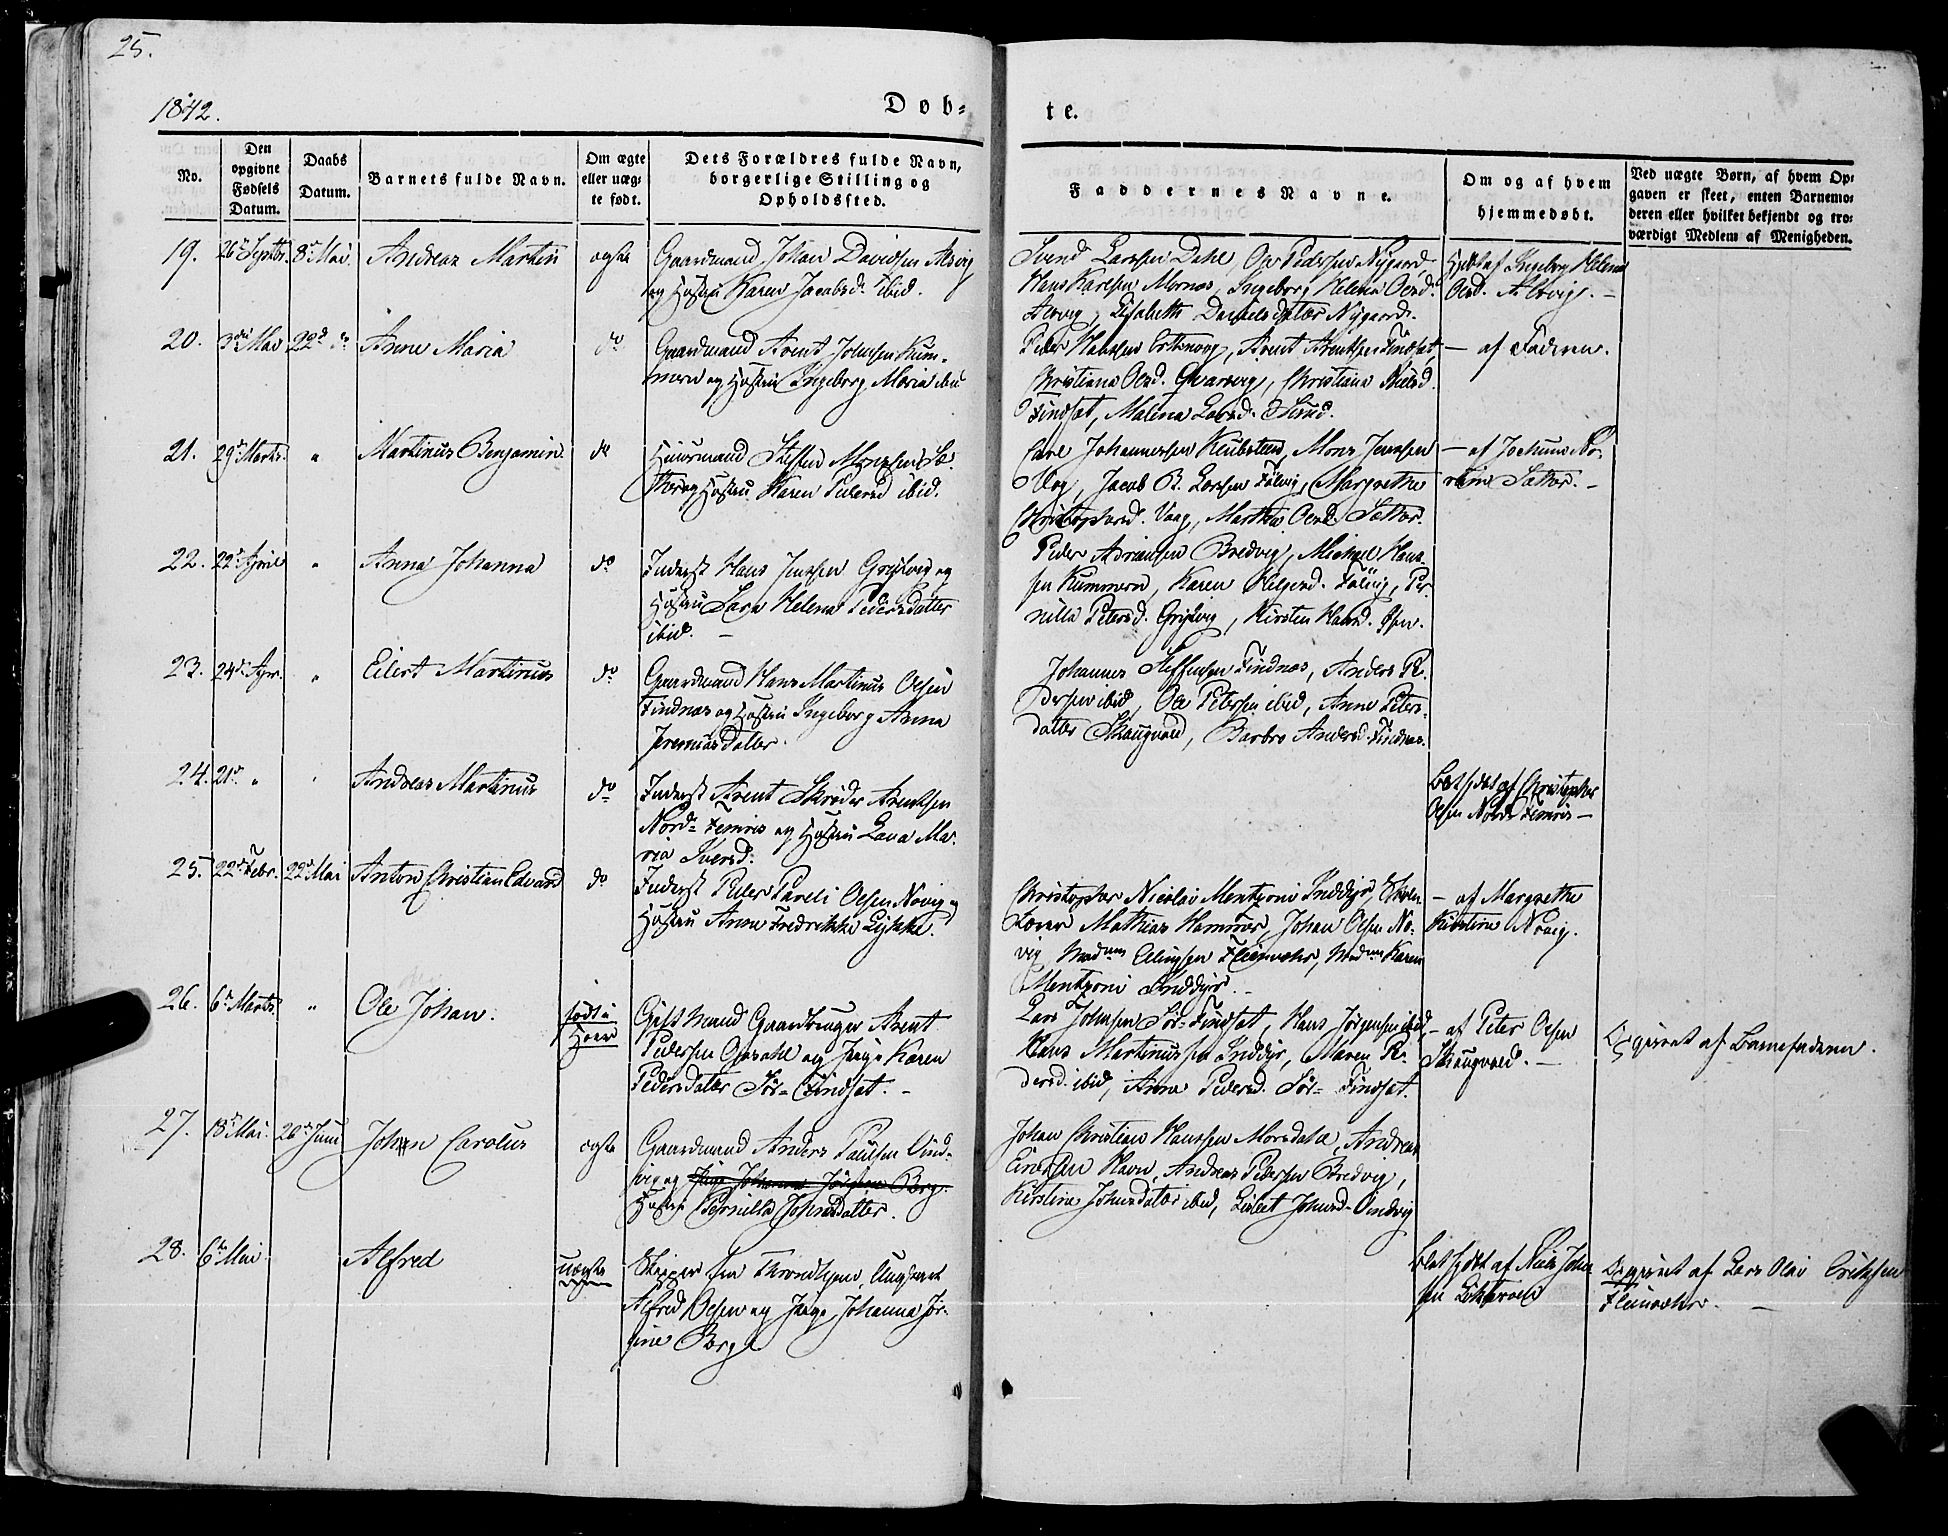 25.
1842.
Døb=
te.
No.
Den opgivne Fødsels Datum.
Daabs Datum.
Barnets fulde Navn.
Om ægte eller uæg- te født.
Dets Forældres fulde Navn, borgerlige Stilling og Opholdssted.
Faddernes Navne.
Om og af hvem hjemmedøbt.
Ved uægte Børn, af hvem Op- gaven er skeet, enten Barnemo- deren eller hvilket bekjendt og tro- værdigt Medlem af Menigheden.
19. 26 Septbr. 8de Mai Andreas Martin ægte
Gaardmand Johan Davidsen
og Hustru Karen Jacobsd. ibid.
Svend Larssen Dahl, Ole Pedersen Nygaard,
Hans Karlsen Mornæs, Ingeborg Helena Olsd.
Elisabeth Danielsdatter Nygaard.
Hjdbt af Ingeborg Helena
Olsd.
20. 3die Mai 22de do Anne Maria do
Gaardmand Arent Johnsen Kum-
mern og Hustru Ingeborg Maria ibid
Peder Hanssen, Arent Arentsen Findset
Christiana Olsd., Christiana Nielsd.
Findset, Malena Larsd. Sund.
— af Faderen.
21. 29de Marts. " Martinus Benjamin do
Huusmand Steffen Monsen Sæ-
og Hustru Karen Pedersd ibid.
Carl Johannessen, Mons Jenssen
Vaag, Jacob B. Larssen, Margrethe
Christophersd. Vaag, Martha Olsd. Sætter.
— af Jochum No-
Sætter. —
22. 22de April " Anna Johanna do
Inderst Hans Jenssen og
Hustru Sara Helena Pedersdatter
ibid. —
Peder Adriansen Bredvig, Michael Hans-
sen Kummern, Karen Helgesd., Per-
nilla Petersd., Kirsten Hansd.
23. 24de Apr. " Eilert Martinus do
Gaardmand Hans Martinus Olsen
Findnæs og Hustru Ingeborg Anna
Jeremiasdatter.
Johannes Steffensen Findnæs, Anders Pe-
dersen ibid, Ole Petersen ibid, Anne Peters-
datter Skaugvold, Barbro Andersd. Findnæs.
24. 21de " " Andreas Martinus do
Inderst Arent Schrøder Arentsen
Nord-Femris og Hustru Lava Ma-
ria Iversd.
Blot hjdbt af Christopher
Olsen Nord Femris —
25. 22de Febr. 22de Mai Anton Christian Edvard do
Inderst Peder Pareli Olsen Novig og
Hustru Anne Fredrikke Lykke.
Christopher Nicolai Mentzoni Inddyr, Skole-
lærer Mathias Hamnæs, Johan Olsen No-
vig, Madam Ellingsen, Madam Karen
Mentzoni Inddyr. —
— af Margrethe
Kirstina Novig.
26. 6te Marts. " Ole Johan. født i
Hoer
Gift Mand Gaardbruger Arent
Pedersen og Pige Karen
Pedersdatter Sør-Findset. —
Lars Johnsen Sør-Findset, Hans Jørgensen ibid,
Hans Martinussen Inddyr, Maren Pe-
dersd. ibid, Anne Pedersd. Sør-Findset.
— af Peter Olsen
Skaugvold. —
Opgivet af Barnefaderen.
27. 18de Mai. 26de Juni Johan Carolus ægte
Gaardmand Anders Paulsen Oind-
vig og Pige Johanna Jørgine Borg.
Hustru Pernilla Johnsdatter.
Johan Christian Hanssen Morsdahl, Andreas
Havn, Andreas Pedersen Bredvig,
Kirstina Johnsdatter ibid, Johnsd. Oindvig
28. 6te Mai. Alfred uægte
Skipper fra Throndhjem, August
Alfred Olsen og Pige Johanna Jør-
gine Borg
Blot hjdbt af Niels John-
sen
Opgivet af Lars Olai Eriksen
—